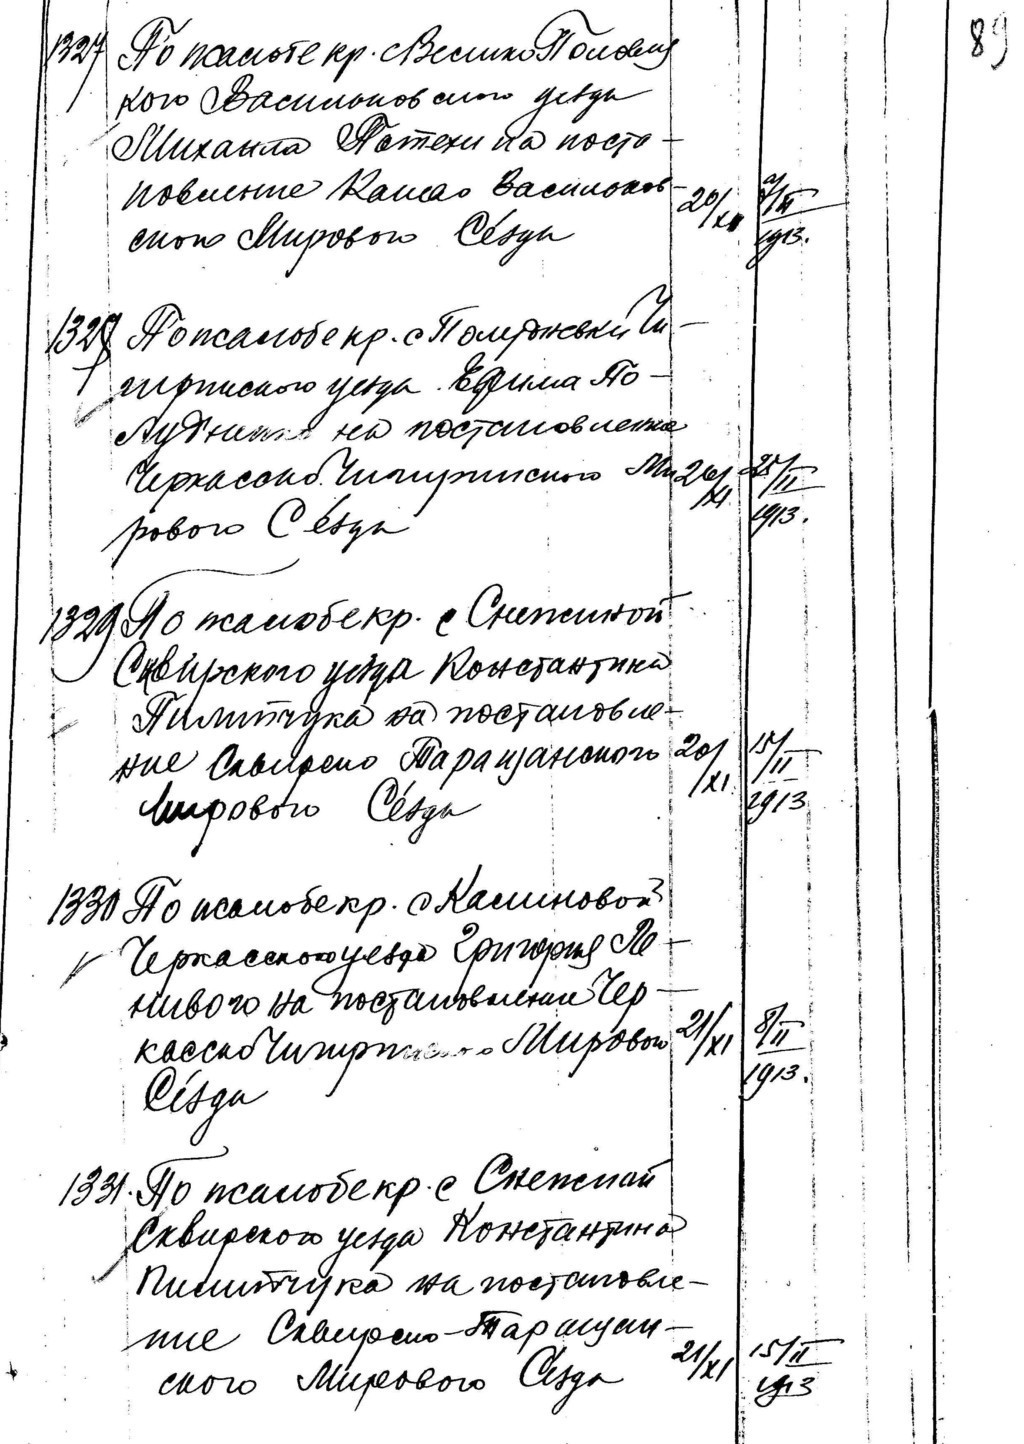 89
1327 По жалобе кр. с Велико Половец
кого Васильковского уезда
Михаила на поста-
новление Васильков-
ского Мирового Съезда
20/XII
II
1913.
1328 По жалобе кр. с Чи-
гиринского уезда Ефима По-
на постановление
Черкасско Чигиринского Ми
рового Съезда
20/XI
25/II
1913.
1329 По жалобе кр. с Снежной
Сквирского уезда Константина
Пилипчука на постановле-
ние Сквирско Таращанского
Мирового Съезда
20/XI
15/II
1913
1330 По жалобе кр. с Калиновой
Черкасского уезда Григория Ле-
нивого на постановление Чер-
касско Чигиринского Мирового
Съезда
21/XI
8/II
1913.
1331. По жалобе кр. с Снежной
Сквирского уезда Константина
Пилипчука на постановле-
ние Сквирско-Таращан-
ского Мирового Съезда
21/XI
15/II
1913